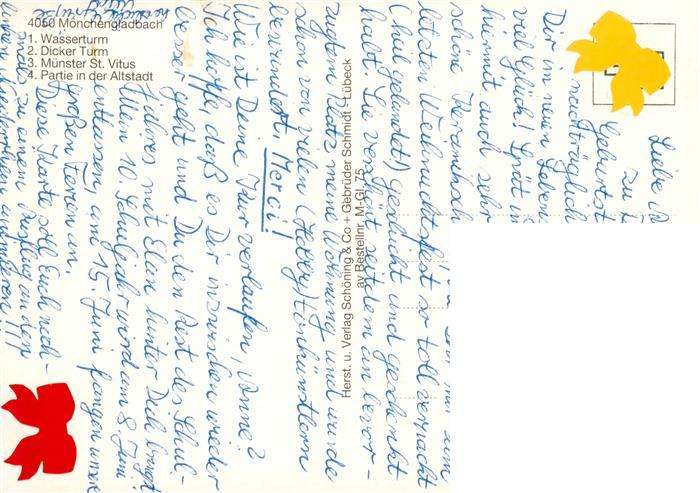 4050 Mönchengladbach
1. Wasserturm
2. Dicker Turm
3. Münster St. Vitus
4. Partie in der Altstadt
Herst. u. Verlag Schöning & Co + Gebrüder Schmidt - Lübeck
av Bestellnr. M-Gl. 75
Liebe
zu
Geburtst
nachträglich
Dir im neuen Leben
viel Glück! Laßt
hiermit auch sehr
schöne Keramik
letzten Weihnachtsfest so toll verpackt
(heil gelandet) gedacht und geschenkt
habt. Sie verschönt seitdem an bevor-
zugtem Platz meine Wohnung und wurde
schon von vielen (Hobby)tonkünstlern
bewundert. Merci!
Wie ist Deine Kur verlaufen, Anne?
Ich hoffe, daß es Dir inzwischen wieder
besser geht und Du den Rest des Schul-
jahres mit Elan hinter Dich bringst
Mein 10. Schuljahr wird am 8. Juni
entlassen, am 15. Juni fangen unsere
großen Ferien an.
Diese Karte soll Euch noch-
mals zu einem Ausflug in den
animieren!!